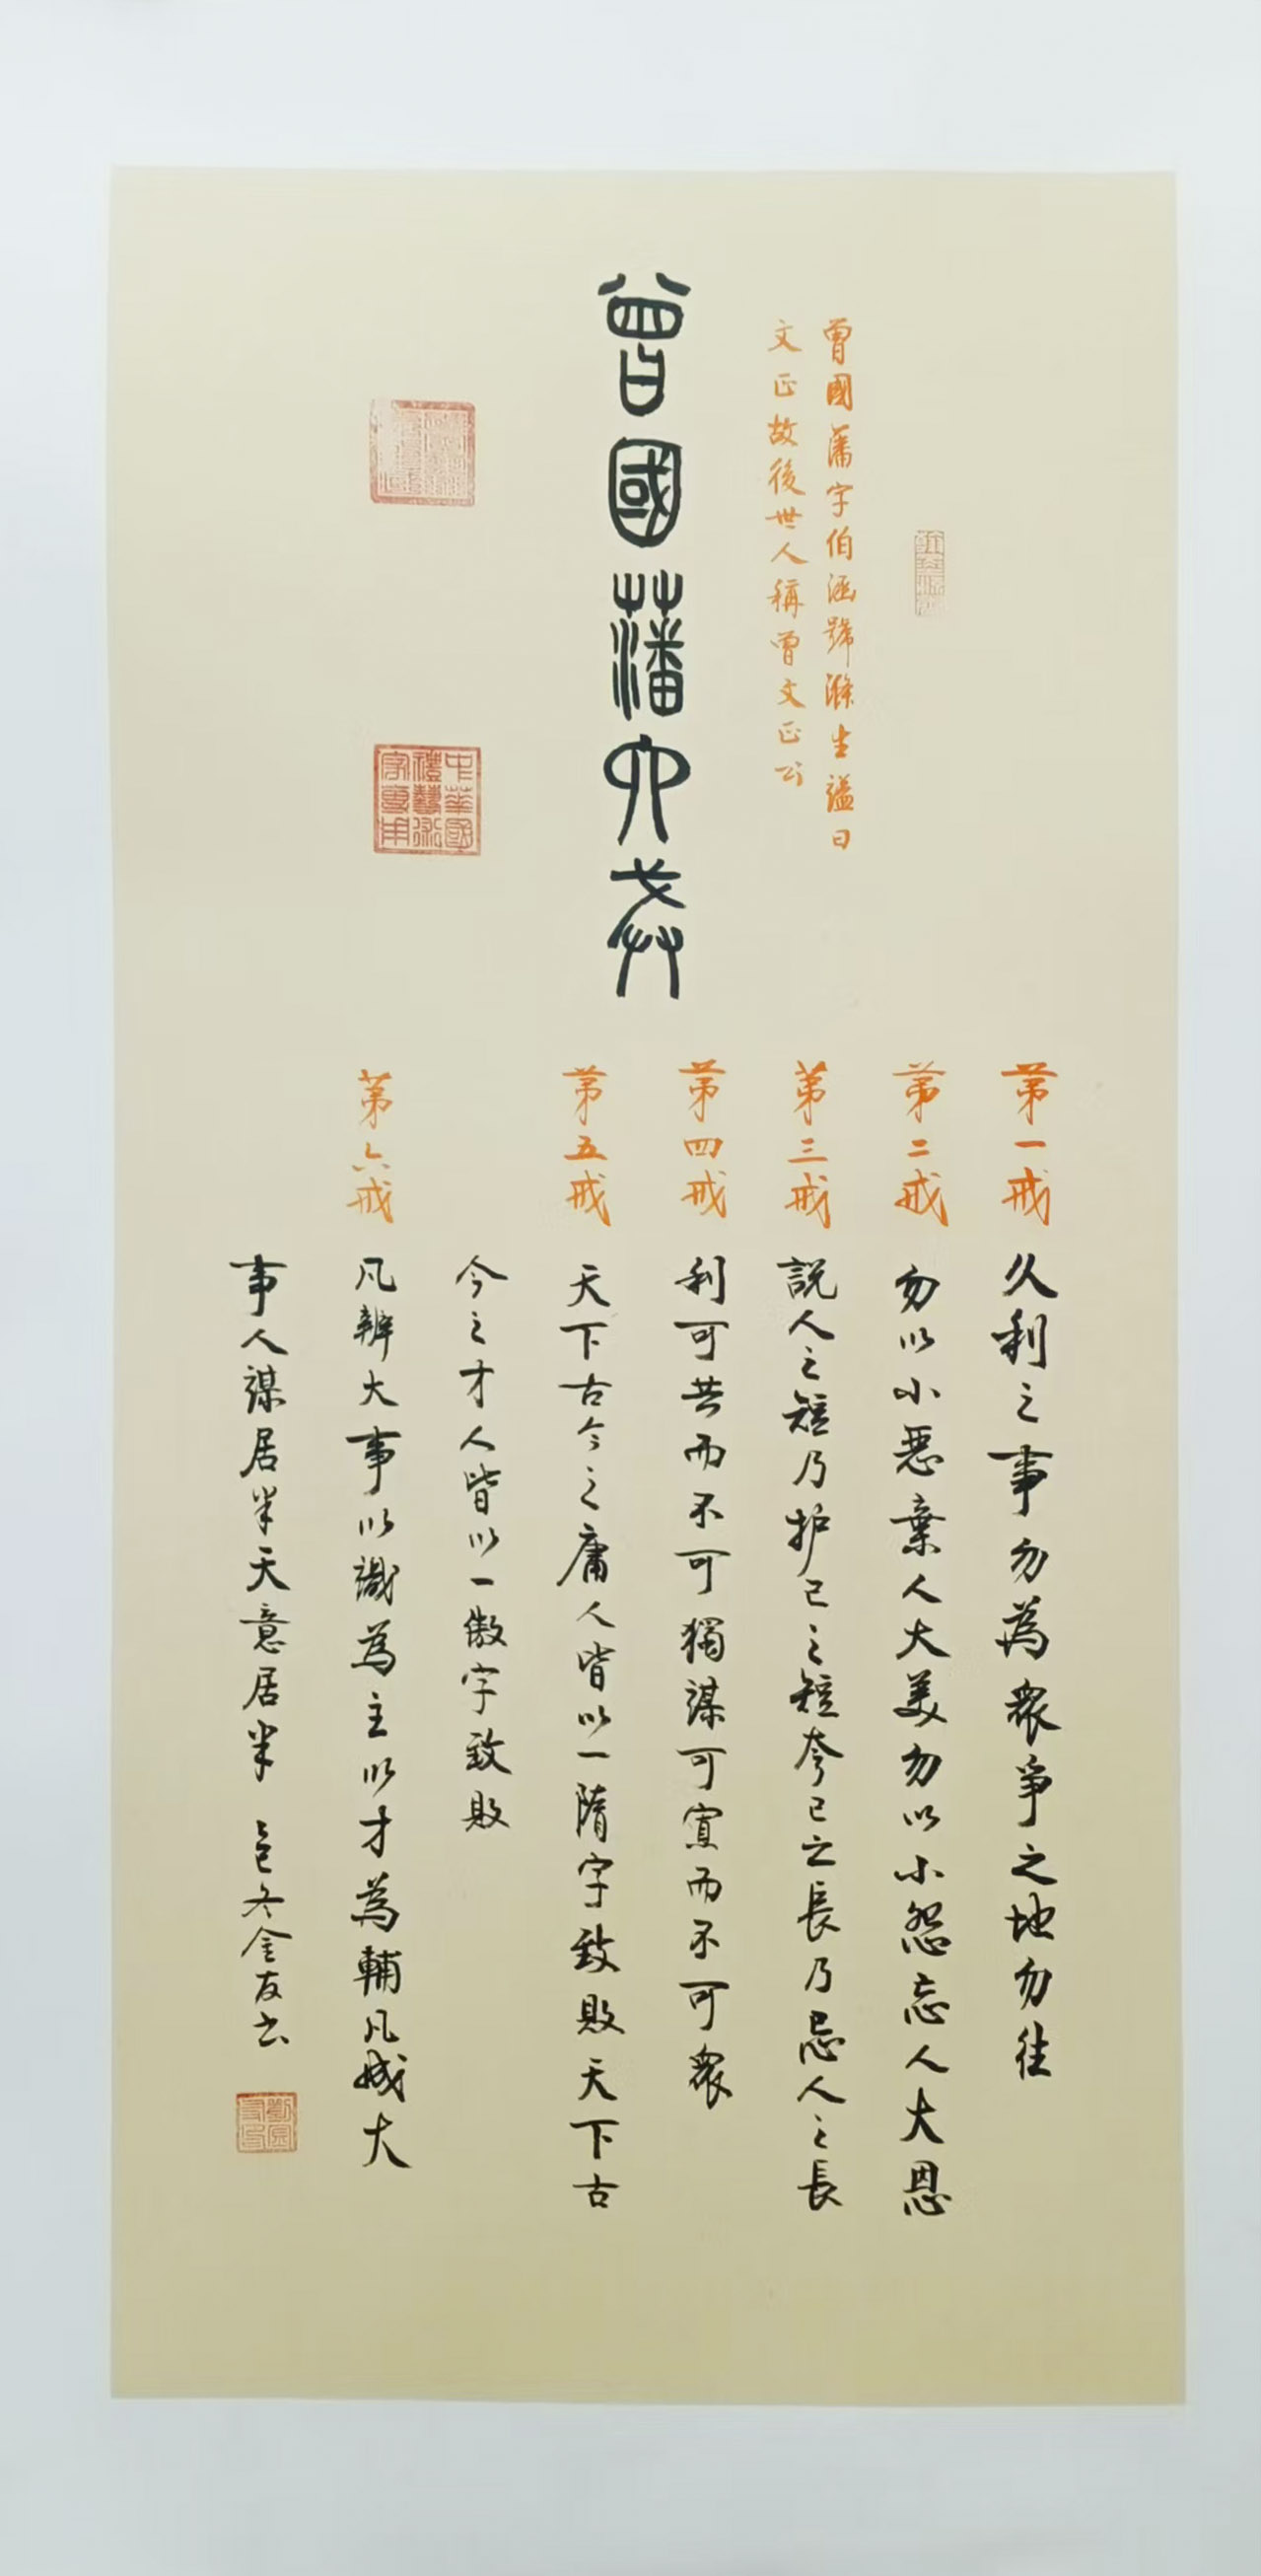 曾國藩字伯涵號滌生謚曰
文正故後世人稱曾文正公
曾國藩六戒
中華國禮藝術家專用
第一戒
久利之事勿為衆爭之地勿往
第二戒
勿以小惡棄人大美勿以小怨忘人大恩
第三戒
説人之短乃护己之短夸己之長乃忌人之長
第四戒
利可共而不可獨謀可寡而不可衆
第五戒
天下古今之庸人皆以一隋字致敗天下古
今之才人皆以一傲字致敗
第六戒
凡辦大事以識為主以才為輔凡成大
事人謀居半天意居半 冬金友书